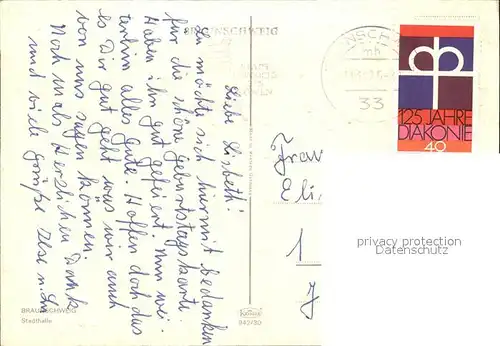 BRAUNSCHWEIG
Liebe Lisbeth!
möchte sich hiermit bedanken
für die schöne Geburtstagskarte.
Haben ihn gut gefeiert. Nun wei-
terhin alles Gute. Hoffen doch das
es Dir gut geht was wir auch
von uns sagen können.
Nochmals Herzlichen Dank
und viele Grüße Ilse u.
BRAUNSCHWEIG
Stadthalle
33
125 JAHRE
DIAKONIE
40
Frau
Eli
1
privacy protection
Datenschutz